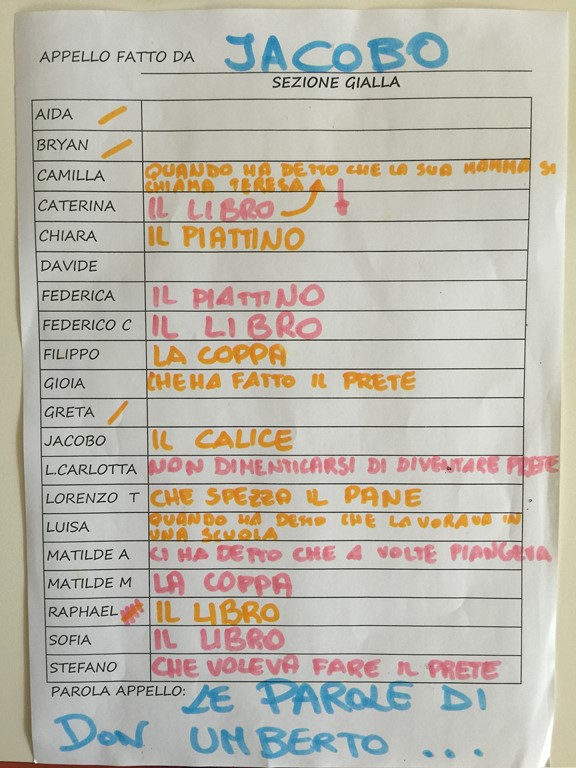 APPELLO FATTO DA JACOBO
SEZIONE GIALLA
AIDA
BRYAN
CAMILLA QUANDO HA DETTO CHE LA SUA MAMMA SI
CHIAMA TERESA
CATERINA IL LIBRO
CHIARA IL PIATTINO
DAVIDE
FEDERICA IL PIATTINO
FEDERICO C IL LIBRO
FILIPPO LA COPPA
GIOIA CHE HA FATTO IL PRETE
GRETA
JACOBO IL CALICE
L.CARLOTTA NON DIMENTICARSI DI DIVENTARE PRETE
LORENZO T CHE SPEZZA IL PANE
LUISA QUANDO HA DETTO CHE LAVORAVA IN
UNA SCUOLA
MATILDE A CI HA DETTO CHE A VOLTE PIANGEVA
MATILDE M LA COPPA
RAPHAEL IL LIBRO
SOFIA IL LIBRO
STEFANO CHE VOLEVA FARE IL PRETE
PAROLA APPELLO: LE PAROLE DI
DON UMBERTO ...